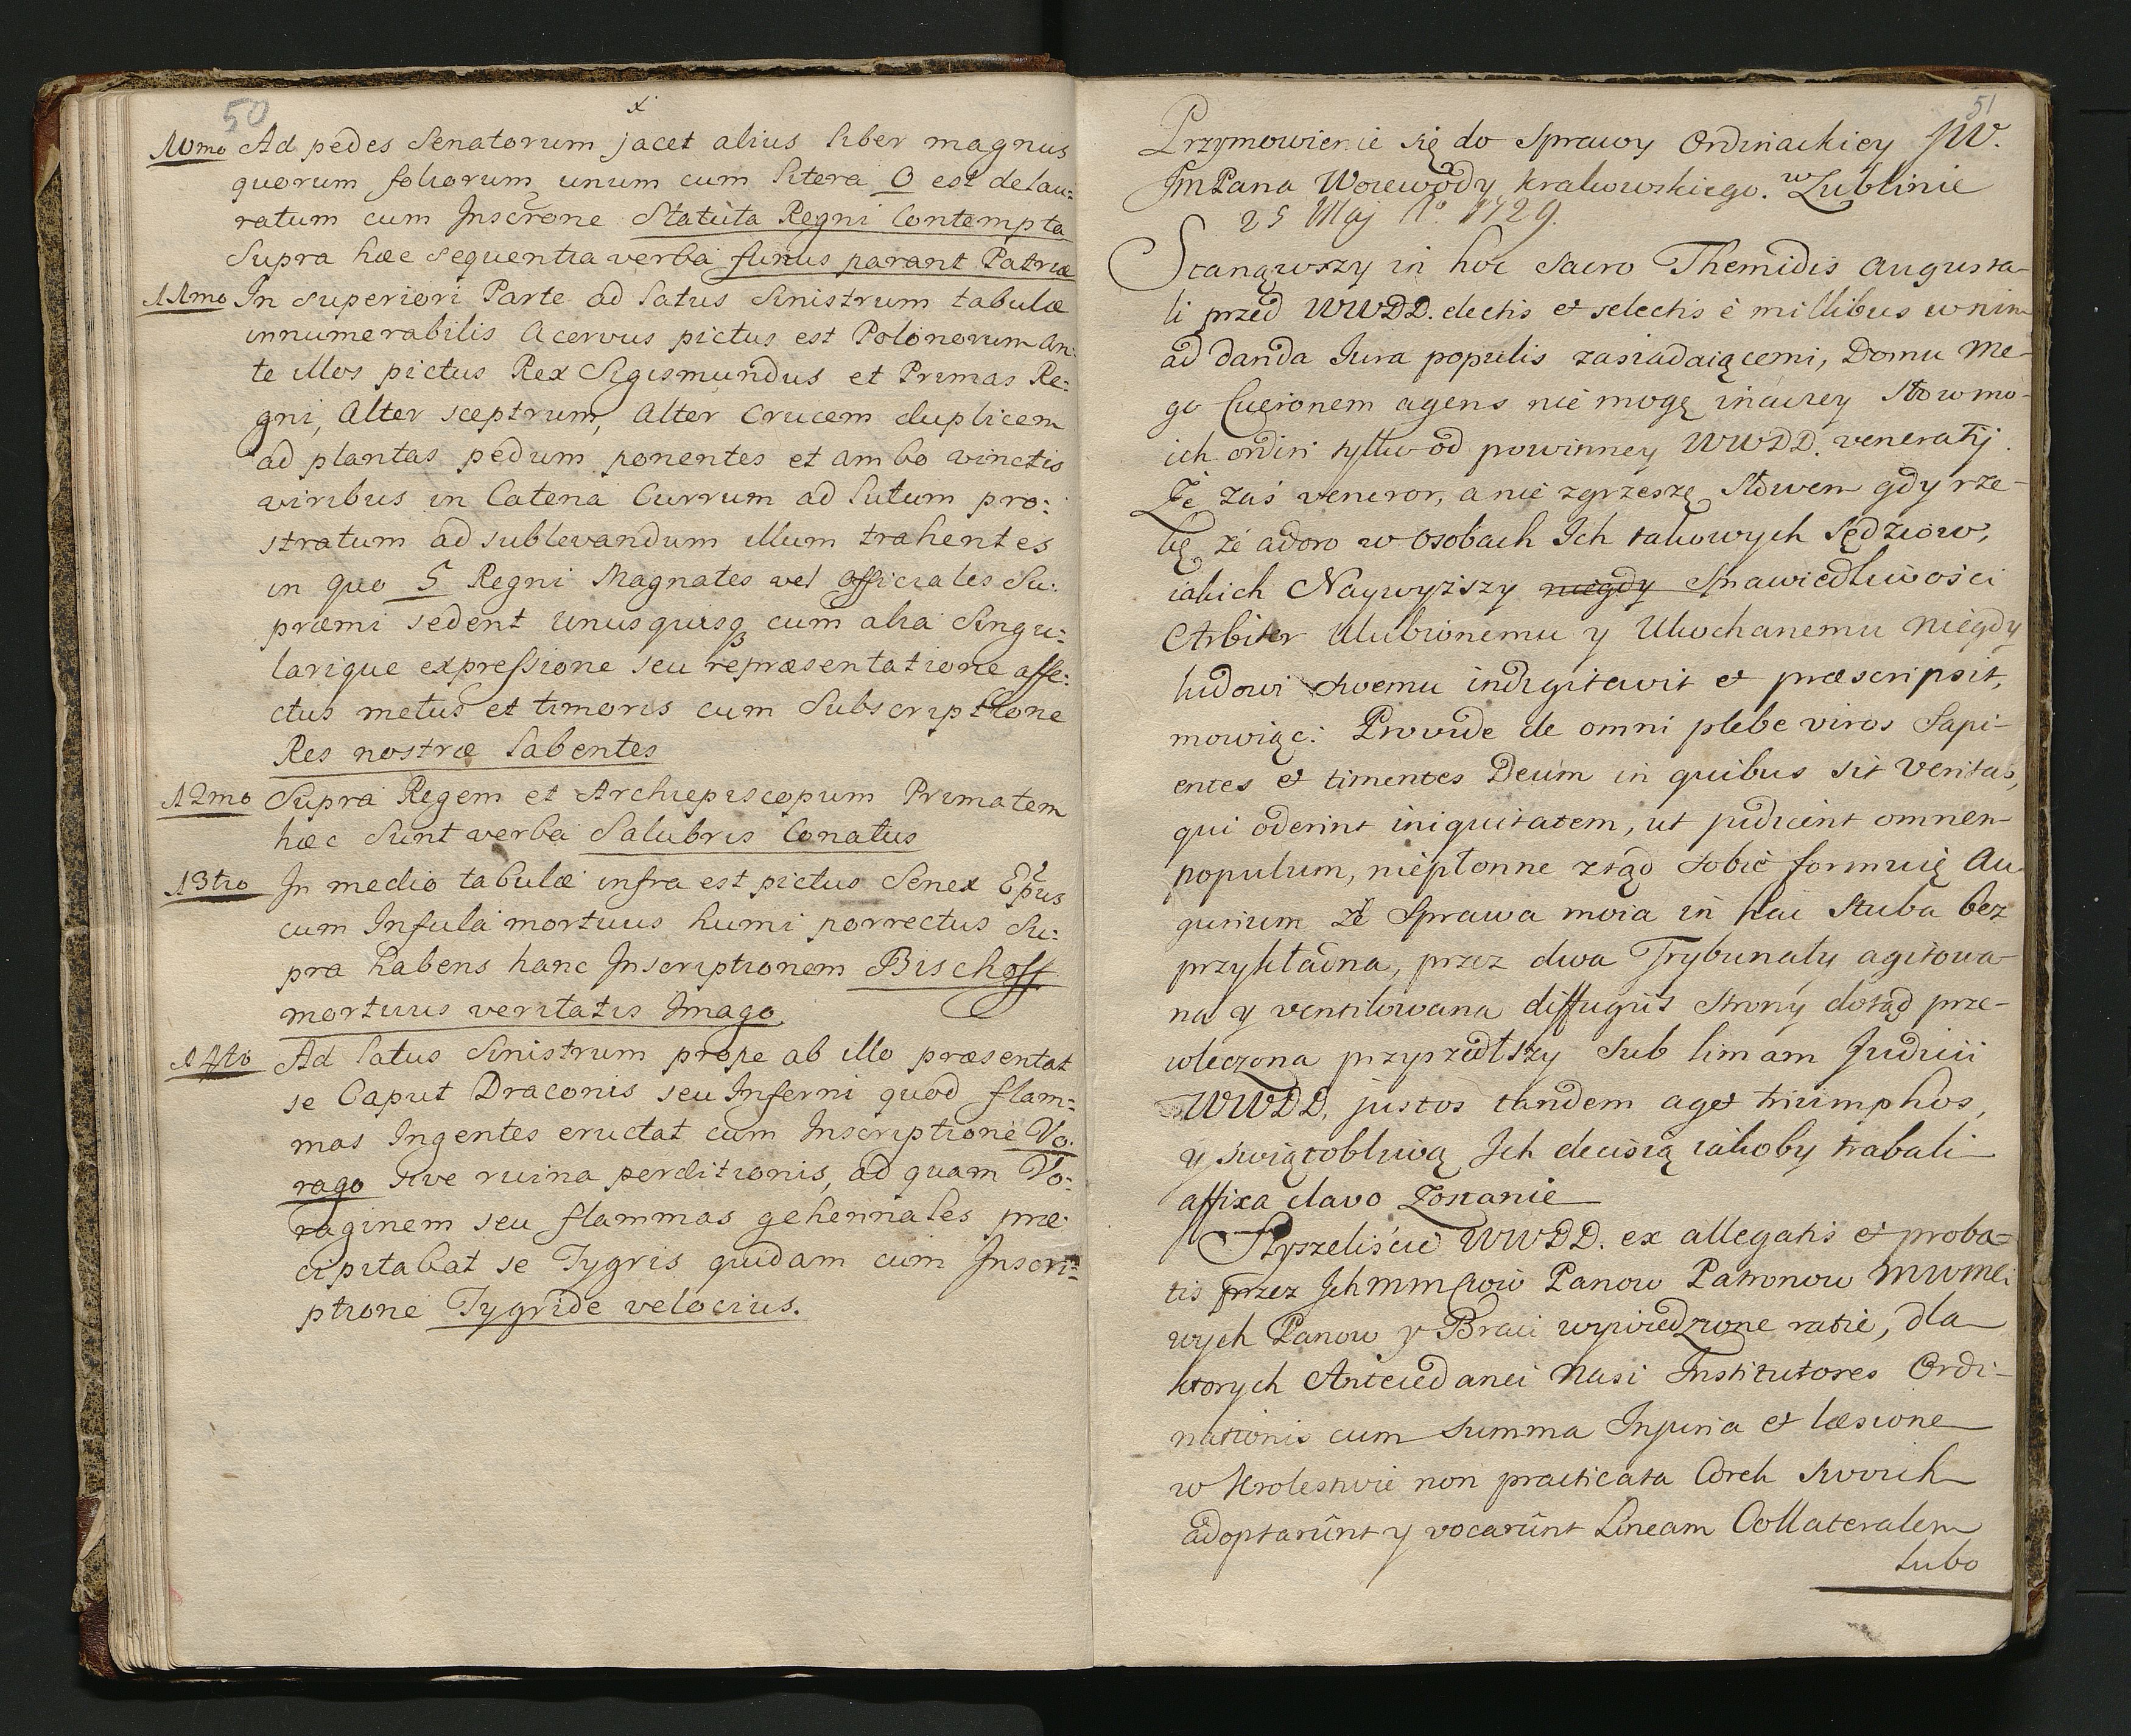 50
x
10mo Ad pedes Senatorum jacet alius liber magnus
quorum foliorum unum cum litera O est delau:
ratum cum Inscrone Statuta Regni Contempta
Supra hæc sequentia verba funus parant Patriæ
11mo In superiori Parte ad latus sinistrum tabulæ
innumerabilis acervus pictus est Polonorum an:
te illos pictus Rex Sigismundus et Primas Re:
gni, alter sceptrum, alter Crucem duplicem
ad plantas pedum ponentes et ambo vinctis
viribus in Catena Currum ad lutum pro:
stratum ad sublevandum illum trahentes
in quo 5 Regni Magnates vel officiales Su:
præmi sedent unusquisq cum alia Singu:
larique expressione seu repræsentatione affe:
ctus metus et timoris cum Subscriptione
Res nostræ labentes
12mo Supra Regem et Archiepiscopum Primatem
hæc sunt verba Salubris Conatus
13tio In medio tabulæ infra est pictus Senex Epus
cum Infula mortuus humi porrectus Su:
pra habens hanc Inscriptionem Bischoff
mortuus veritatis Imago
14to Ad latus sinistrum prope ab illo præsentat
se Caput Draconis seu Inferni quod flam:
mas Ingentes eructat cum Inscriptione Vo:
rago sive ruina perditionis, ad quam Vo:
raginem seu flammas gehennales præ:
cipitabat se Tygris quidam cum Inscri:
ptione Tygride velocius.
51
Przymowienie się do Sprawy Ordinackiey JW.
JmPana Woiewody Krakowskiego. w Lublinie
25 Maj Ao. 1729.
Stanąwszy in hoc Sacro Themidis Augusta-
li przed WWDD. electis et selectis è millibus w nim
ad danda Jura populis zasiadaiącemi, Domu Me-
go Ciceronem agens nie mogę inaczey słow mo-
ich ordiri tylko od powinney WWDD. veneratij.
Że zaś veneror, a nie zgrzeszę słowem gdy rze-
kę że adoro w osobach Ich takowych Sędziow,
iakich Naywyższy niegdy Sprawiedliwości
Arbiter Ulubionemu y Ukochanemu niegdy
ludowi swemu indigitavit et præscripsit,
mowiąc: Provide de omni plebe viros Sapi-
entes et timentes Deum in quibus sit veritas,
qui oderint iniquitatem, ut judicent omnem
populum, niepłonne ztąd sobie formuię Au
gurium że Sprawa moia in hac Stuba bez
przykładna, przez dwa Trybunały agitowa-
na y ventilowana diffugiis strony dotąd prze-
wleczona przyszedłszy sub limam Judicii
WWDD, justos tandem aget triumphos,
y swiątobliwą Ich decisią iakoby trabali
affixa clavo zostanie
Słyszeliście WWDD. ex allegatis et proba-
tis przez Panow Patronow
wych Panow y Braci wywiedzione ratie, dla
ktorych Antecedanei Nasi Institutores Ordi-
nationis cum summa Injuria et læsione
w Krolestwie non practicata Corek swoich
adoptarunt y vocarunt Lineam Collateralem
lubo